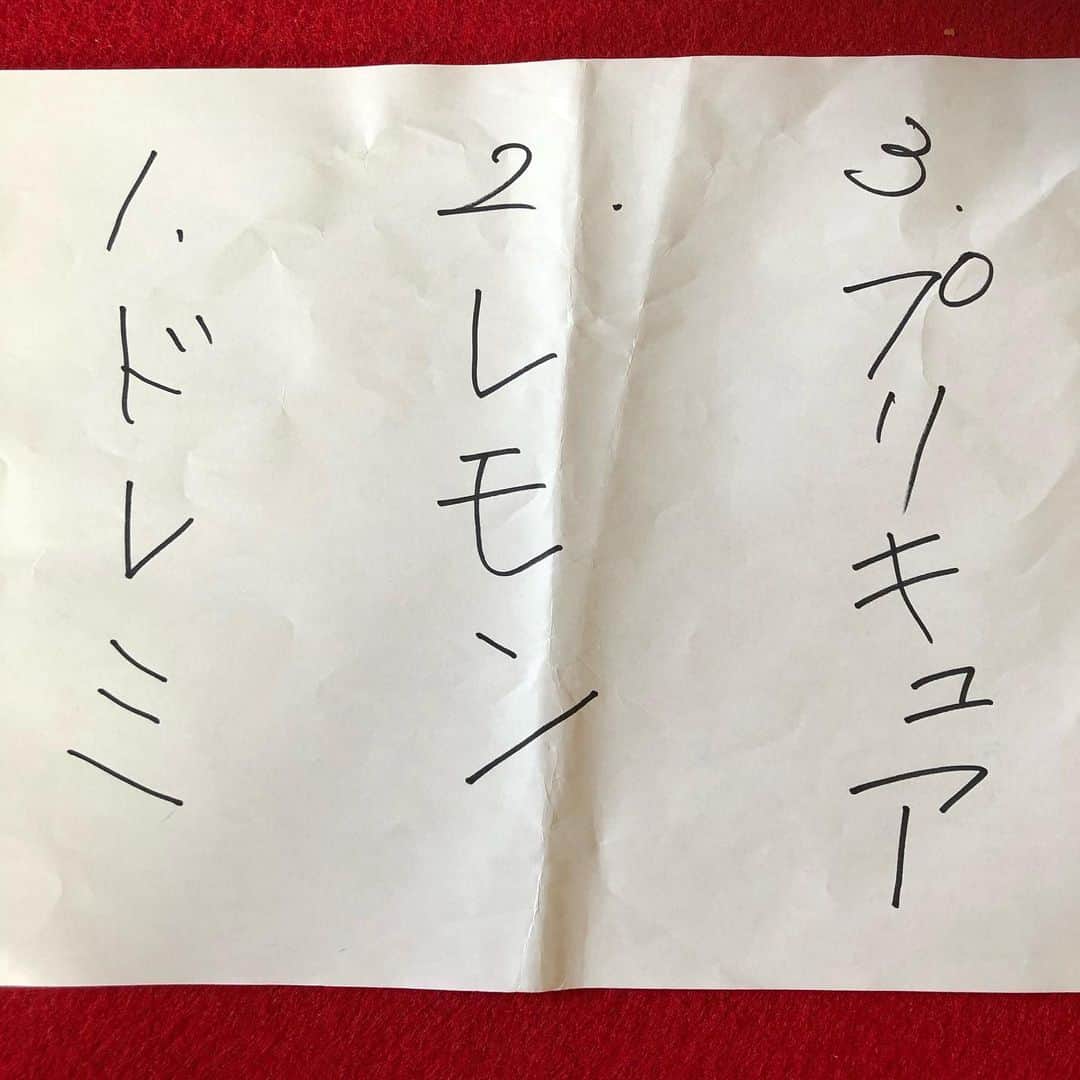 1. ドレミ
2. レモン
3. プリキュア